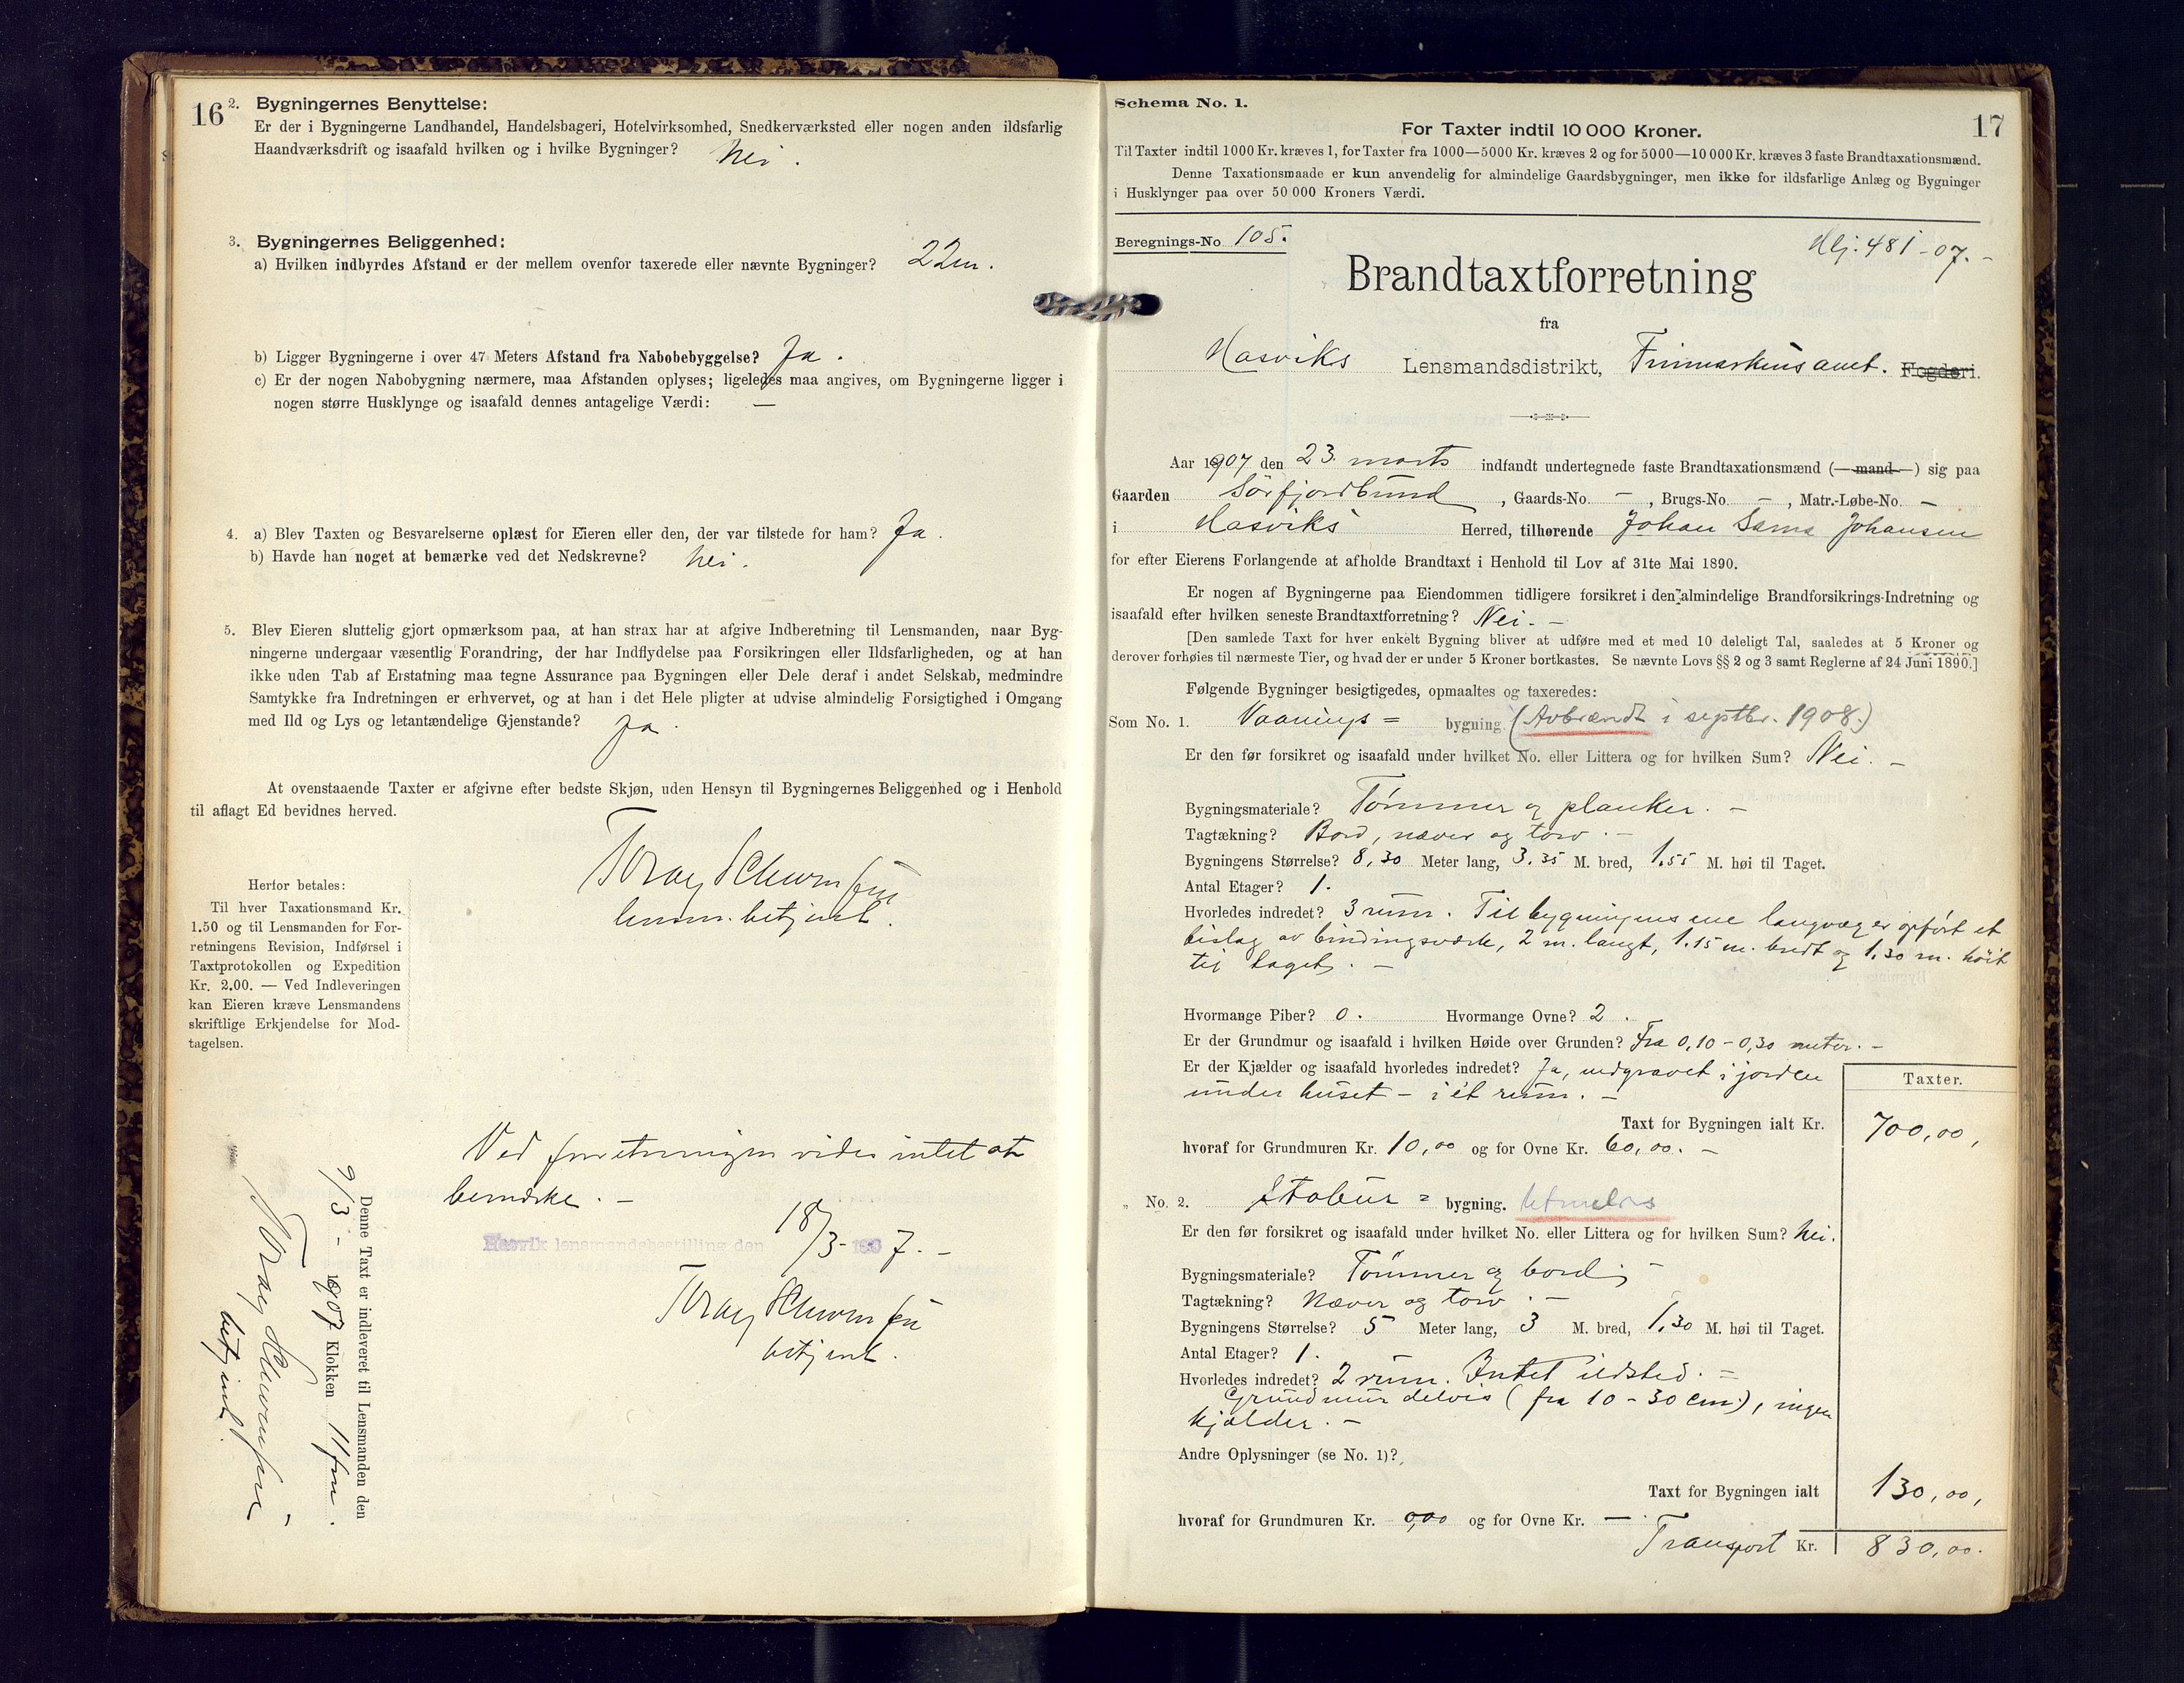 16
2. Bygningernes Benyttelse:
Er der i Bygningerne Landhandel, Handelsbageri, Hotelvirksomhed, Snedkerværksted eller nogen anden ildsfarlig
Haandværksdrift og isaafald hvilken og i hvilke Bygninger? Nei.
3. Bygningernes Beliggenhed:
a) Hvilken indbyrdes Afstand er der mellem ovenfor taxerede eller nævnte Bygninger? 22 m.
b) Ligger Bygningerne i over 47 Meters Afstand fra Nabobebyggelse? Ja.
c) Er der nogen Nabobygning nærmere, maa Afstanden oplyses; ligeledes maa angives, om Bygningerne ligger i
nogen større Husklynge og isaafald dennes antagelige Værdi: —
4. a) Blev Taxten og Besvarelserne oplæst for Eieren eller den, der var tilstede for ham? Ja.
b) Havde han noget at bemærke ved det Nedskrevne? Nei.
5. Blev Eieren sluttelig gjort opmærksom paa, at han strax har at afgive Indberetning til Lensmanden, naar Byg-
ningerne undergaar væsentlig Forandring, der har Indflydelse paa Forsikringen eller Ildsfarligheden, og at han
ikke uden Tab af Erstatning maa tegne Assurance paa Bygningen eller Dele deraf i andet Selskab, medmindre
Samtykke fra Indretningen er erhvervet, og at han i det Hele pligter at udvise almindelig Forsigtighed i Omgang
med Ild og Lys og letantændelige Gjenstande? Ja.
At ovenstaaende Taxter er afgivne efter bedste Skjøn, uden Hensyn til Bygningernes Beliggenhed og i Henhold
til aflagt Ed bevidnes herved.
lensm. betjent.
Herfor betales:
Til hver Taxationsmand Kr.
1.50 og til Lensmanden for For-
retningens Revision, Indførsel i
Taxtprotokollen og Expedition
Kr. 2.00. — Ved Indleveringen
kan Eieren kræve Lensmandens
skriftlige Erkjendelse for Mod-
tagelsen.
Ved forretningen vides intet at
bemærke. —
Hasvik lensmandsbestilling den 18/3 - 1907. —
betjent.
Denne Taxt er indleveret til Lensmanden den
9/3 - 1907 Klokken 11 fm.
betjent.
Schema No. 1.
17
For Taxter indtil 10 000 Kroner.
Til Taxter indtil 1000 Kr. kræves 1, for Taxter fra 1000—5000 Kr. kræves 2 og for 5000—10 000 Kr. kræves 3 faste Brandtaxationsmænd.
Denne Taxationsmaade er kun anvendelig for almindelige Gaardsbygninger, men ikke for ildsfarlige Anlæg og Bygninger
i Husklynger paa over 50 000 Kroners Værdi.
Beregnings-No 105.
481-07. -
Brandtaxtforretning
fra
Hasviks Lensmandsdistrikt, Finmarkens amt. Fogderi.
Aar 1907 den 23. marts indfandt undertegnede faste Brandtaxationsmænd (—mand—) sig paa
Gaarden Sörfjordbund, Gaards-No. —, Brugs-No. —, Matr.-Løbe-No. —
i Hasviks Herred, tilhørende Johan Johansen
for efter Eierens Forlangende at afholde Brandtaxt i Henhold til Lov af 31te Mai 1890.
Er nogen af Bygningerne paa Eiendommen tidligere forsikret i den almindelige Brandforsikrings-Indretning og
isaafald efter hvilken seneste Brandtaxtforretning? Nei. —
[Den samlede Taxt for hver enkelt Bygning bliver at udføre med et med 10 deleligt Tal, saaledes at 5 Kroner og
derover forhøies til nærmeste Tier, og hvad der er under 5 Kroner bortkastes. Se nævnte Lovs §§ 2 og 3 samt Reglerne af 24 Juni 1890.]
Følgende Bygninger besigtigedes, opmaaltes og taxeredes:
Som No. 1. Vaanings = bygning (Avbrændt i septbr. 1908.)
Er den før forsikret og isaafald under hvilket No. eller Littera og for hvilken Sum? Nei. —
Bygningsmateriale? Tömmer og planker. —
Tagtækning? Bord, næver og torv. —
Bygningens Størrelse? 8,30 Meter lang, 3.35 M. bred, 1.55 M. høi til Taget.
Antal Etager? 1.
Hvorledes indredet? 3 rum. Til bygningens ene langvæg er opfört et
bislag av bindingsværk, 2 m. langt, 1.15 m. bredt og 1,30 m. höit
til taget. —
Hvormange Piber? 0. Hvormange Ovne? 2.
Er der Grundmur og isaafald i hvilken Høide over Grunden? Fra 0,10 - 0,30 meter. —
Er der Kjælder og isaafald hvorledes indredet? Ja, udgravet i jorden
under huset — i ét rum. —
Taxter.
Taxt for Bygningen ialt Kr. 700,00,
hvoraf for Grundmuren Kr. 10,00 og for Ovne Kr. 60,00. —
„ No. 2. Stabur = bygning. Utmeldes
Er den før forsikret og isaafald under hvilket No. eller Littera og for hvilken Sum? Nei.
Bygningsmateriale? Tömmer og bord; —
Tagtækning? Næver og torv. —
Bygningens Størrelse? 5 Meter lang, 3 M. bred, 1,30 M. høi til Taget.
Antal Etager? 1.
Hvorledes indredet? 2 rum. Intet ildsted. —
Grundmur delvis (fra 10 - 30 cm.), ingen
kjælder. —
Andre Oplysninger (se No. 1)?
Taxt for Bygningen ialt 130,00,
hvoraf for Grundmuren Kr. 0,00 og for Ovne Kr. —
Transport Kr. 830,00.